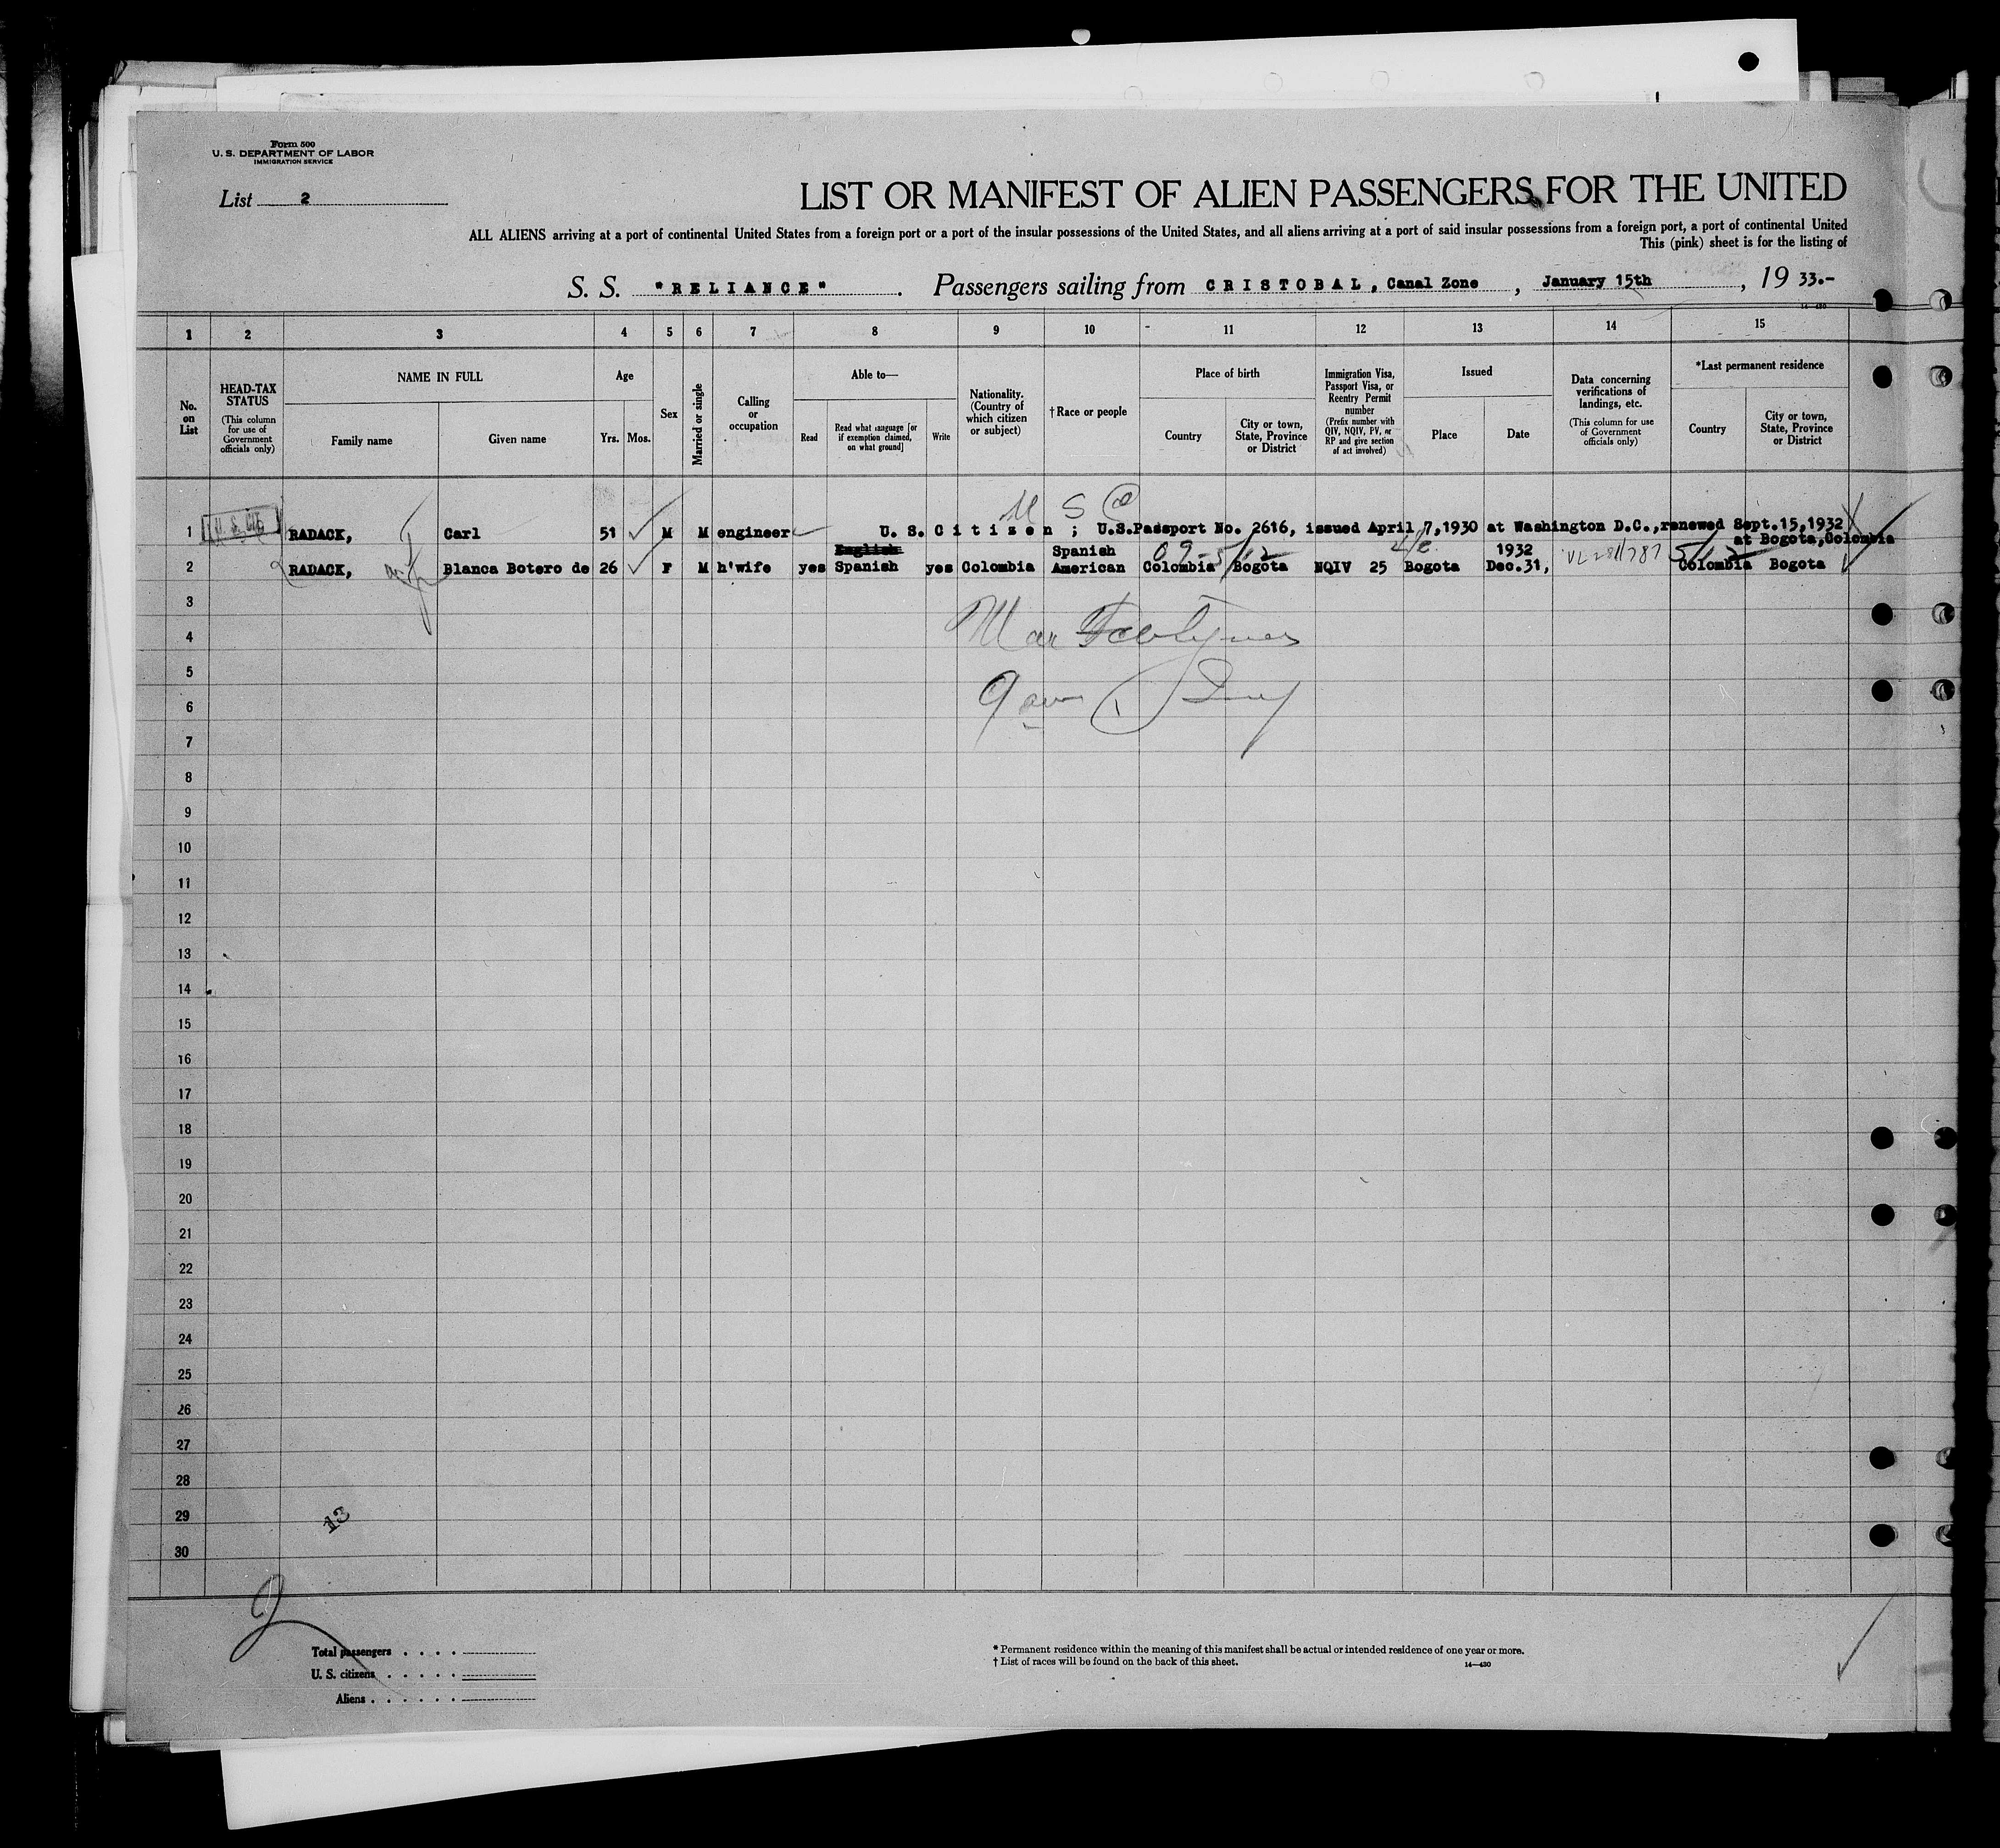 Form 500
U. S. DEPARTMENT OF LABOR
IMMIGRATION SERVICE
List 2
LIST OR MANIFEST OF ALIEN PASSENGERS FOR THE UNITED
ALL ALIENS arriving at a port of continental United States from a foreign port or a port of the insular possessions of the United States, and all aliens arriving at a port of said insular possessions from a foreign port, a port of continental United
This (pink) sheet is for the listing of
S. S. "RELIANCE". Passengers sailing from CRISTOBAL, Canal Zone, January 15th, 19 33.-
14-430
1 2 3 4 5 6 7 8 9 10 11 12 13 14 15
No. on List
HEAD-TAX STATUS (This column for use of Government officials only)
NAME IN FULL
Family name
Given name
Age
Yrs. Mos.
Sex
Married or single
Calling or occupation
Able to—
Read
Read what language [or if exemption claimed, on what ground]
Write
Nationality. (Country of which citizen or subject)
† Race or people
Place of birth
Country
City or town, State, Province or District
Immigration Visa, Passport Visa, or Reentry Permit number (Prefix number with QIV, NQIV, PV, or RP and give section of act involved)
Issued
Place
Date
Data concerning verifications of landings, etc. (This column for use of Government officials only)
*Last permanent residence
Country
City or town, State, Province or District
U S @
1 U. S. CIT. RADACK, Carl 51 M M engineer U. S. Citizen ; U.S.Passport No. 2616, issued April 7,1930 at Washington D.C., renewed Sept.15,1932
at Bogota, Colombia
English Spanish 09-5/12 1932 5/12
2 RADACK, wife Blanca Botero de 26 F M h'wife yes Spanish yes Colombia American Colombia Bogota NQIV 25 Bogota Dec.31, Colombia Bogota
3
4
5
9 am
6
7
8
9
10
11
12
13
14
15
16
17
18
19
20
21
22
23
24
25
26
27
28
29
13
30
2
Total passengers . . . .
U. S. citizens . . . . .
Aliens . . . . . .
* Permanent residence within the meaning of this manifest shall be actual or intended residence of one year or more.
† List of races will be found on the back of this sheet.
14—430